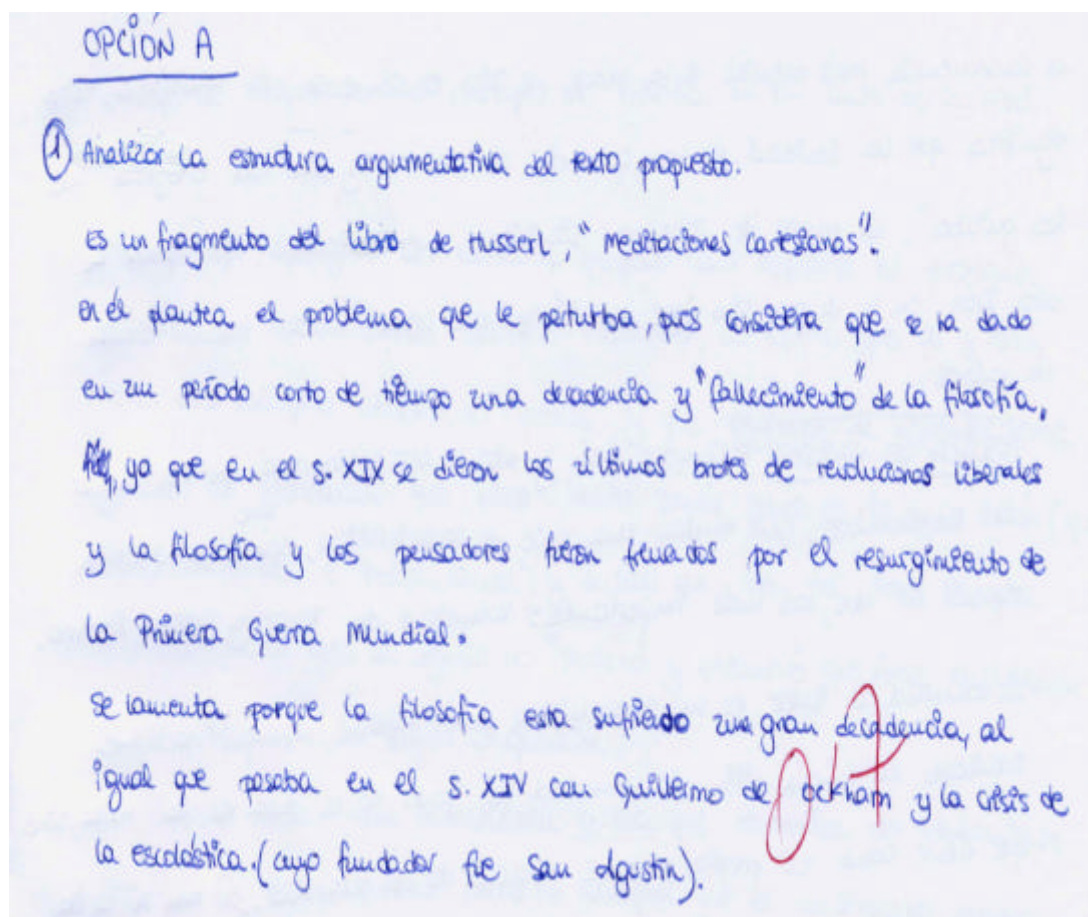 OPCIÓN A
① Analizar la estructura argumentativa del texto propuesto.
Es un fragmento del libro de Husserl, "Meditaciones cartesianas".
En él plantea el problema que le perturba, pues considera que se ha dado
en un período corto de tiempo una decadencia y "fallecimiento" de la filosofía,
ya que en el s. XIX se dieron los últimos brotes de revoluciones liberales
y la filosofía y los pensadores fueron frenados por el resurgimiento de
la Primera Guerra Mundial.
Se lamenta porque la filosofía esta sufriendo una gran decadencia, al
igual que pasaba en el s. XIV con Guillermo de Ockham y la crisis de
la escolástica. (cuyo fundador fue San Agustín).
0'7